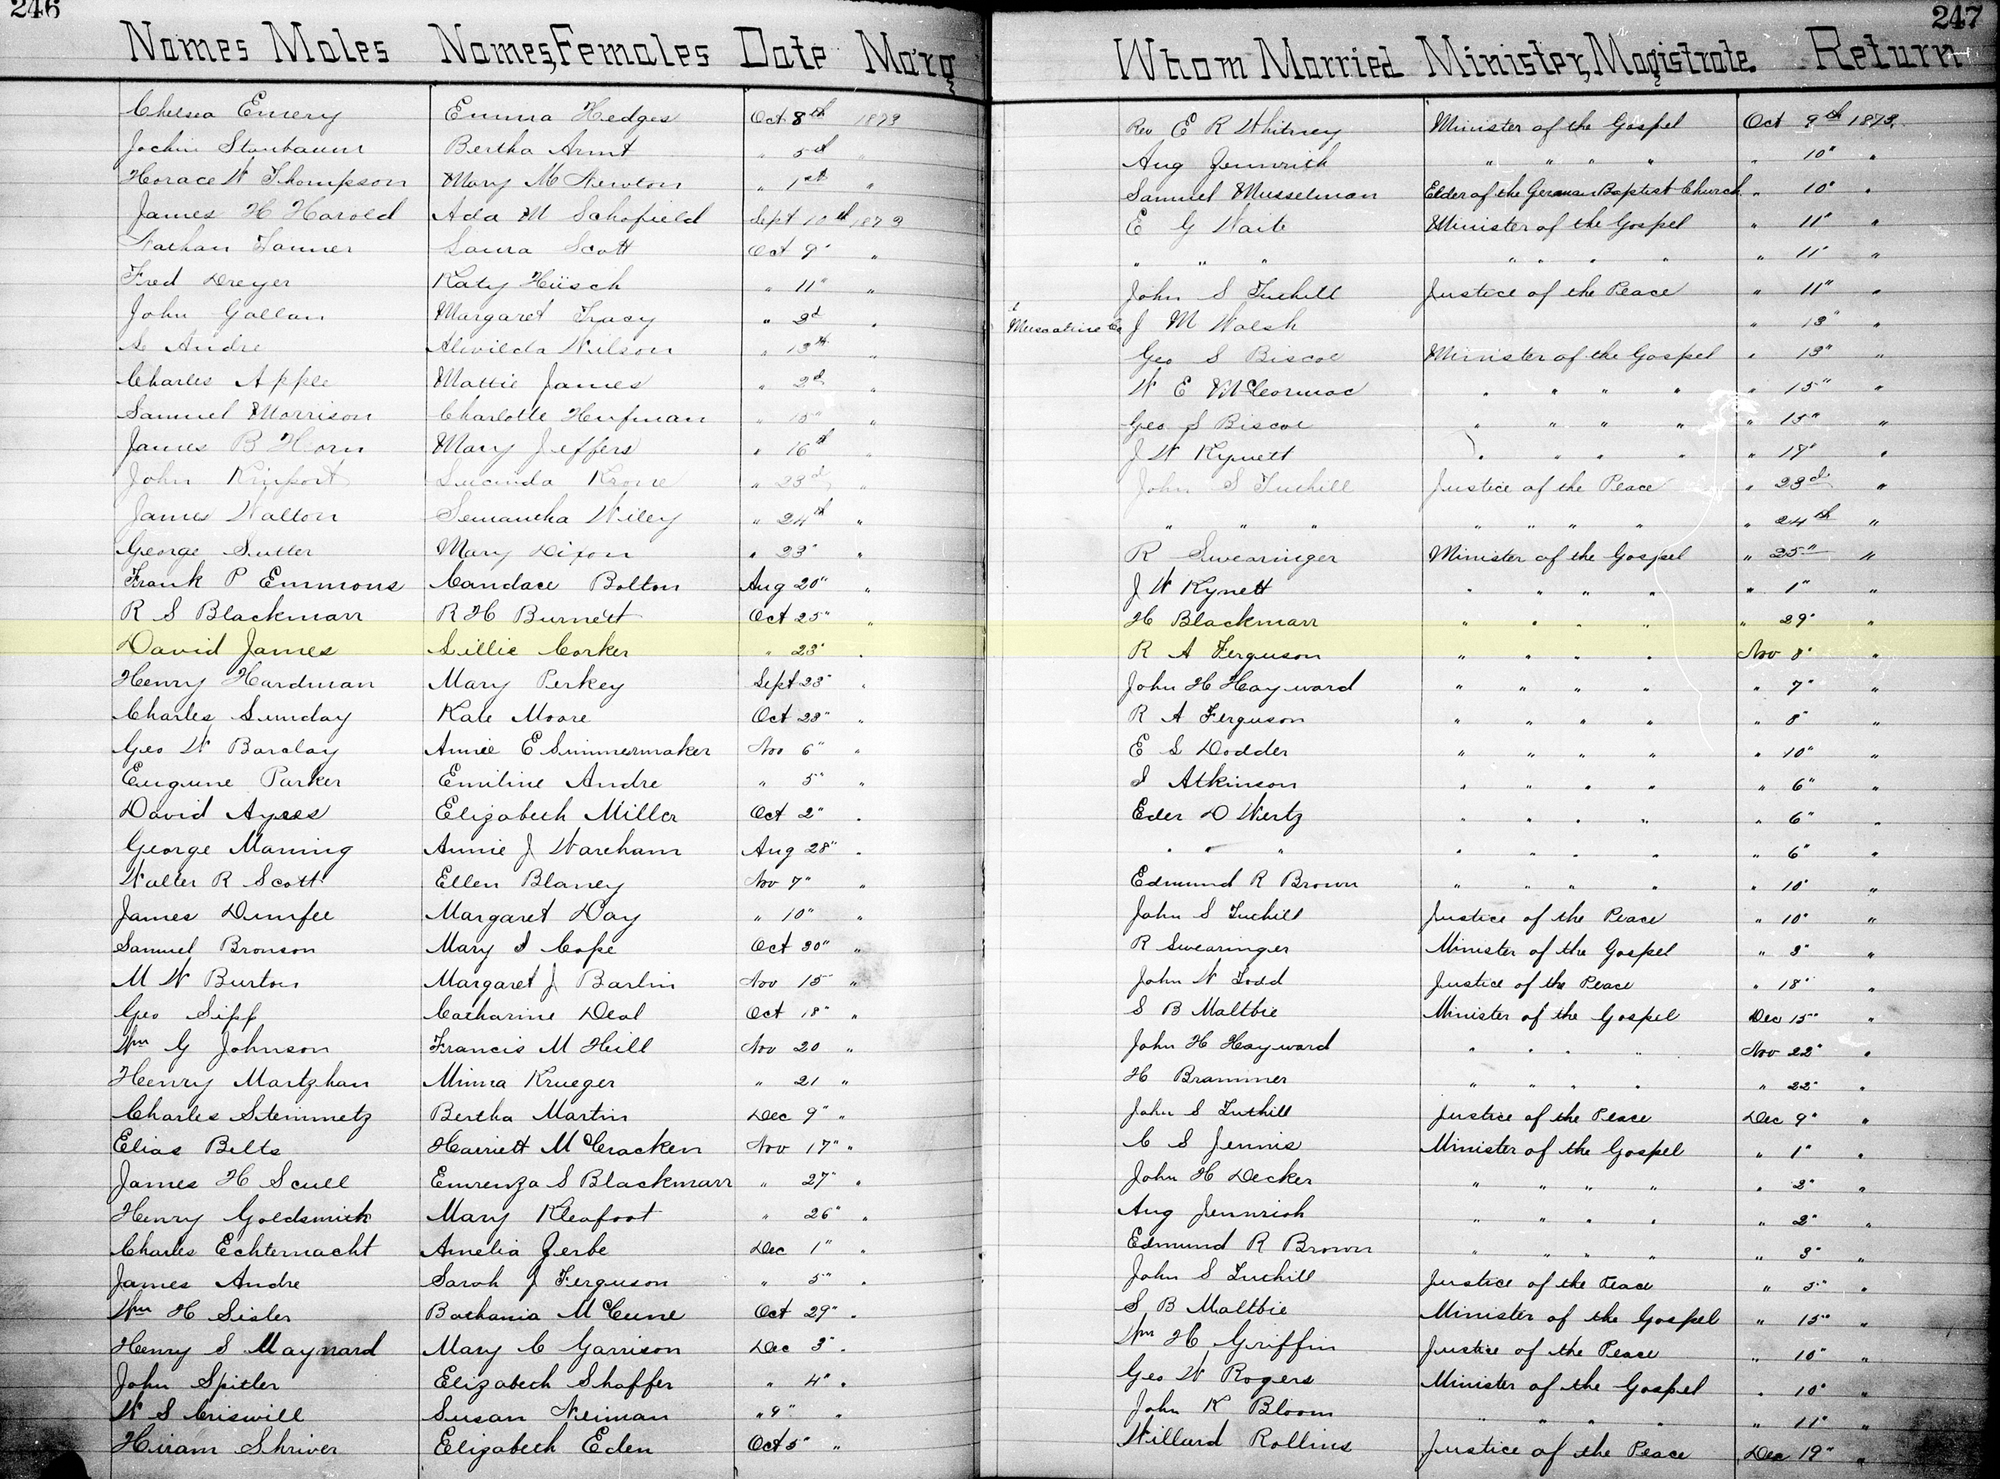 246
247
Names Males Names, Females Date Marg Whom Married Minister, Magistrate. Return
Chelsea Emery Emma Hedges Oct 8th 1873 Rev E R Whitney Minister of the Gospel Oct 9th 1873.
Jochin Bertha Arnt " 5d " Aug Jennrich " " " " " 10" "
Horace W Thompson Mary M Newton " 1st " Samuel Musselman Elder of the German Baptist Church " 10" "
James H Harold Ada M Schofield Sept 10th 1873 E G Waite Minister of the Gospel " 11" "
Nathan Tanner Laura Scott Oct 9" " " " " " " " " " 11 "
Fred Dreyer Katy " 11" " John S Tuthill Justice of the Peace " 11" "
John Gallan Margaret Tracy " 2d " Muscatine Co J M Walsh " 13" "
S Andre Alwilda Wilson " 13th " Geo S Biscoe Minister of the Gospel " 13" "
Charles Apple Mattie James " 2d " W E McCormac " " " " " 15" "
Samuel Morrison Charlotte Hufman " 15" " Geo S Biscoe " " " " " 15" "
James B Horn Mary Jeffers " 16th " J W Kynett " " " " "
John Rinport Lucinda Krone " 23d " John S Tuthill Justice of the Peace " 23d "
James Walton Semantha Wiley " 24th " " " " " " " " " 24th "
George Sutter Mary Dixon " 23" " R Swearinger Minister of the Gospel " 25" "
Frank P Emmons Candace Bolton Aug 20" " J W Kynett " " " " " 1" "
R S Blackmarr R H Burnett Oct 25" " H Blackmarr " " " " " 29" "
David James Lillie Corker " 23" " R A Ferguson " " " " Nov 8" "
Henry Hardman Mary Perkey Sept 23" " John H Hayward " " " " " 7" "
Charles Sunday Kate Moore Oct 28" " R A Ferguson " " " " " 8" "
Geo W Barclay Annie E Summermaker Nov 6" " E S Dodder " " " " " 10" "
Eugune Parker Emiline Andre " 5" " I Atkinson " " " " " 6" "
David Ayres Elizabeth Miller Oct 2" " Eder D Wertz " " " " " 6" "
George Manning Annie J Wareham Aug 28" " " " " " " " " " 6" "
Walter R Scott Ellen Blaney Nov 7" " Edmund R Brown " " " " " 10" "
James Dunfee Margaret Day " 10" " John S Tuthill Justice of the Peace " 10" "
Samuel Bronson Mary I Cope Oct 30" " R Swearinger Minister of the Gospel " 3" "
M W Burton Margaret J Barlin Nov 15" " John W Todd Justice of the Peace " 18" "
Geo Sipp Catharine Deal Oct 18" " S B Maltbie Minister of the Gospel Dec 15" "
Wm G Johnson Francis M Hill Nov 20 " John H Hayward " " " " Nov 22" "
Henry Martzhan Minna Krueger " 21 " H Brammer " " " " " 22" "
Charles Steinmetz Bertha Martin Dec 9" " John S Tuthill Justice of the Peace Dec 9" "
Elias Belts Harriett McCracken Nov 17" " C S Jennis Minister of the Gospel " 1" "
James H Scull Emrenza S Blackmarr " 27" " John H Decker " " " " " 2" "
Henry Goldsmith Mary Kleafoot " 26" " Aug Jennrich " " " " " 2" "
Charles Echternacht Amelia Zerbe Dec 1" " Edmund R Brown " " " " " 3" "
James Andre Sarah J Ferguson " 5" " John S Tuthill Justice of the Peace " 5" "
Wm H Sisler Bathania McCune Oct 29" " S B Maltbie Minister of the Gospel " 15" "
Henry S Maynard Mary C Garrison Dec 3" " Wm H Griffin Justice of the Peace " 10" "
John Spitler Elizabeth Shaffer " 4" " Geo W Rogers Minister of the Gospel " 10" "
W S Criswill Susan Neiman " 9" " John K Bloom " " " " " 11" "
Hiram Shriver Elizabeth Eden Oct 5" " Willard Rollins Justice of the Peace Dec 19" "